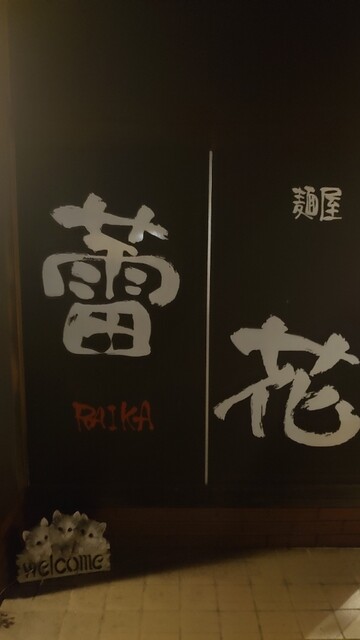 麺屋
蕾
花
RAIKA
welcome